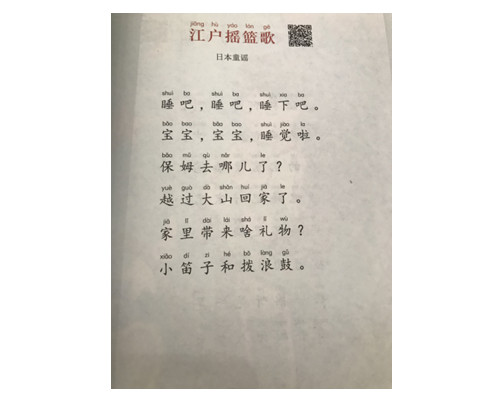 jiāng hù yáo lán gē
江户摇篮歌
日本童谣
shuì ba shuì ba shuì xia ba
睡吧，睡吧，睡下吧。
bǎo bao bǎo bao shuì jiào la
宝宝，宝宝，睡觉啦。
bǎo mǔ qù nǎr le
保姆去哪儿了？
yuè guò dà shān huí jiā le
越过大山回家了。
jiā lǐ dài lái shá lǐ wù
家里带来啥礼物？
xiǎo dí zi hé bō làng gǔ
小笛子和拨浪鼓。